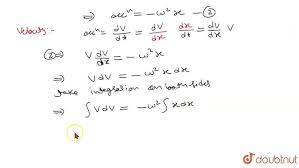 ⇒ accⁿ = -ω²x — ②
Velocity:- accⁿ = dV/dt = dV/dx dx/dt = dV/dx V
②⇒ V dV/dx = -ω²x
⇒ VdV = -ω²x dx
take integration on both sides
⇒ ∫VdV = -ω²∫xdx
doubtnut